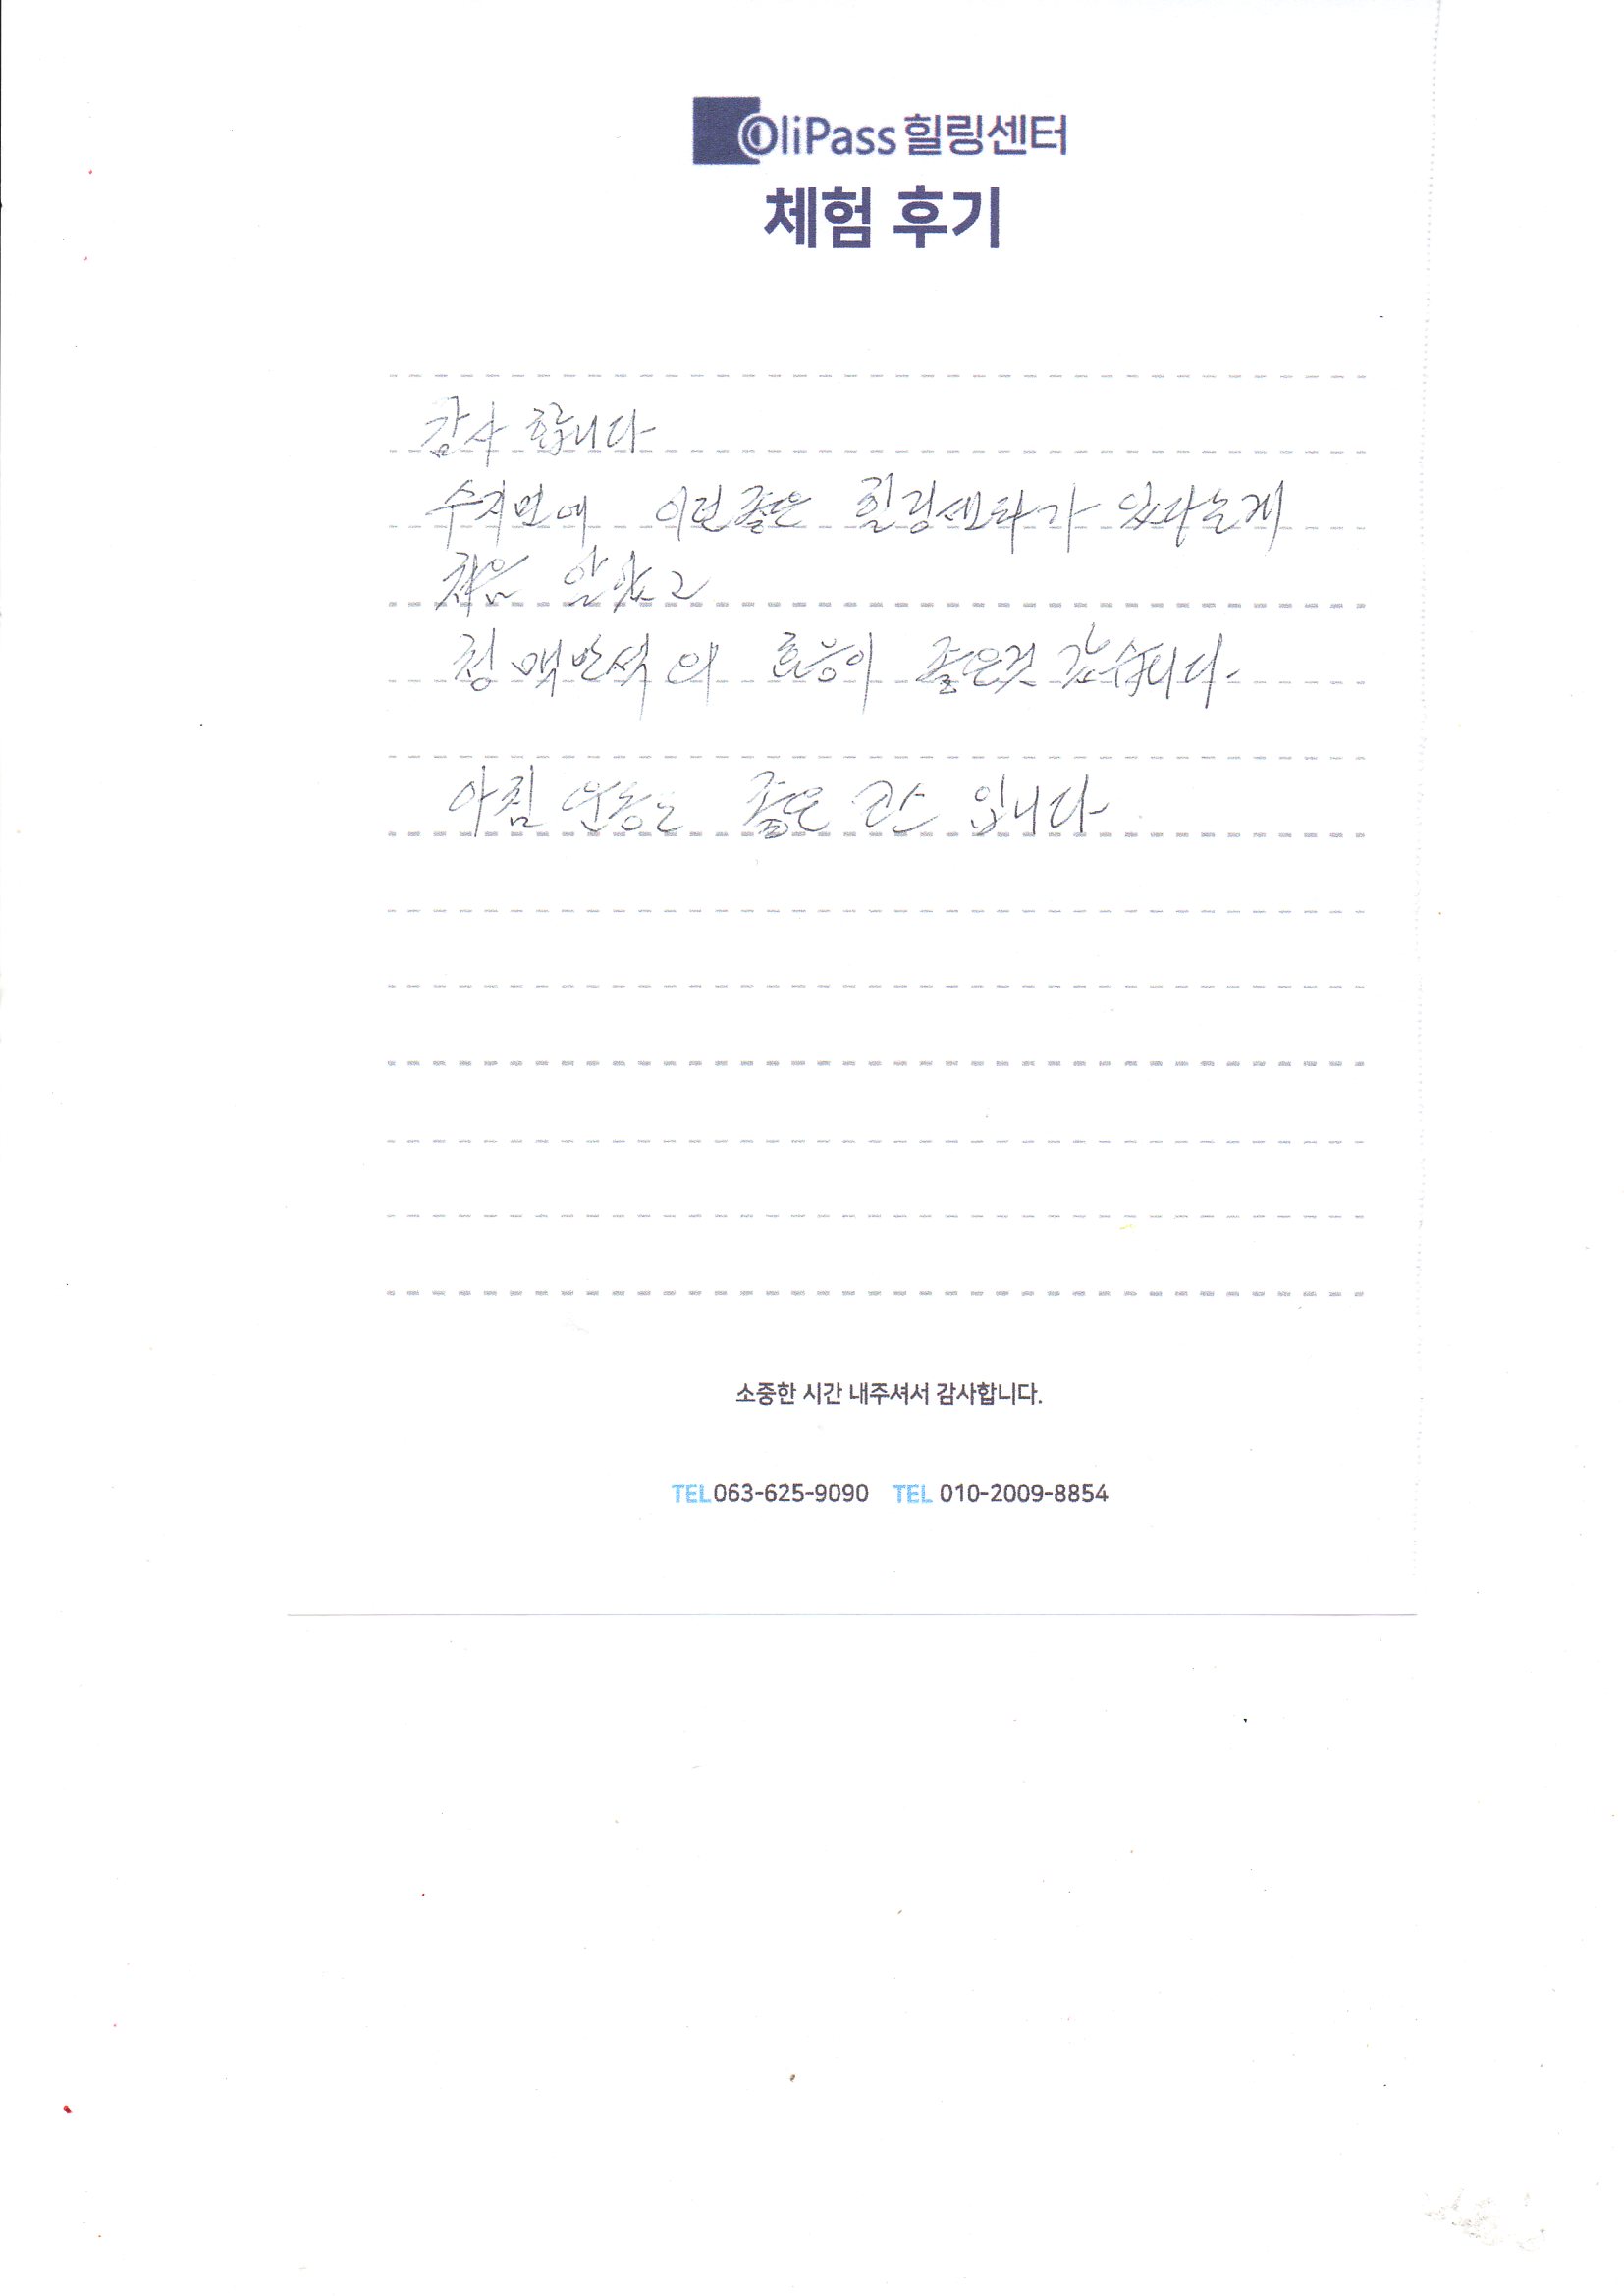 OliPass 힐링센터
체험 후기
감사 합니다
수지면에 이런 좋은 힐링센타가 있다는게
처음 알았고
청맥반석의 효능이 좋은것 같습니다.
아침 운동는 좋은 입니다
소중한 시간 내주셔서 감사합니다.
TEL 063-625-9090 TEL 010-2009-8854